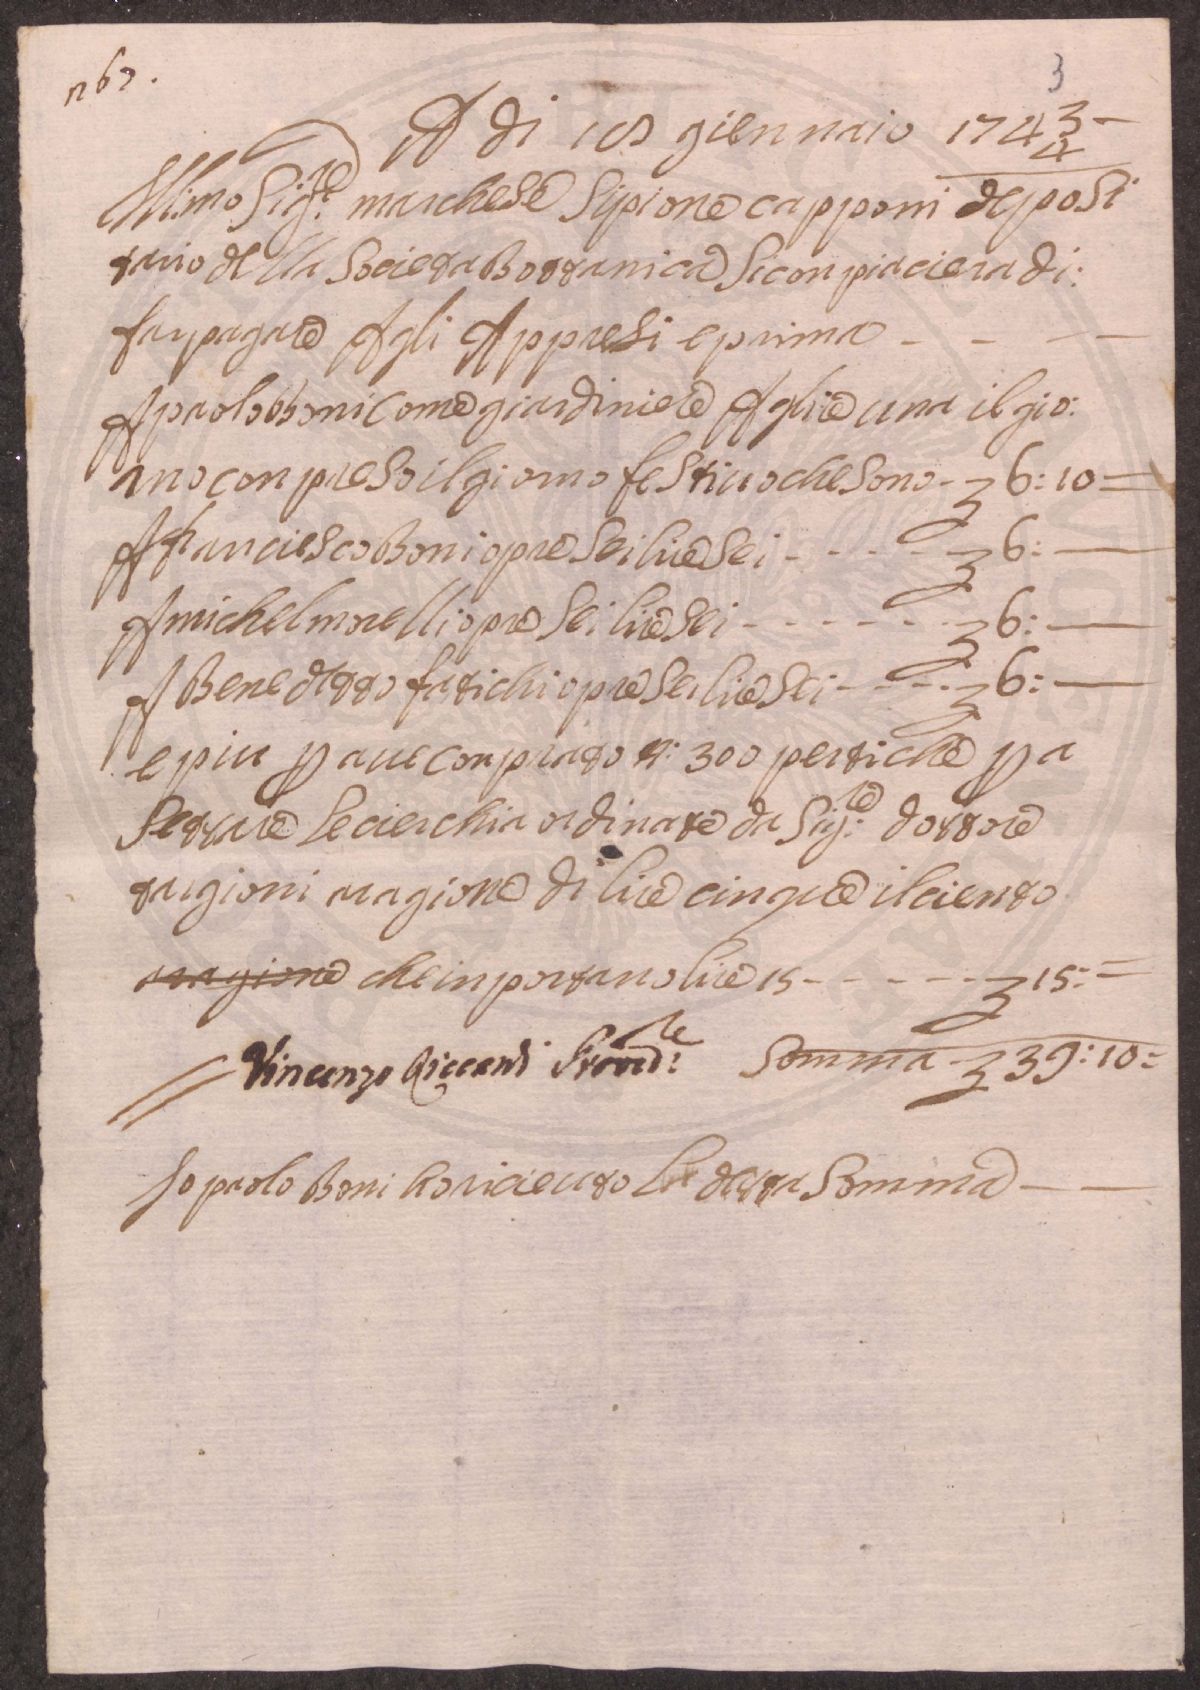 n 67.
3
A di 18 giennaio 174 3/4
Ill:mo Sig:re marchese Sipione capponi deposi
tario della Societa Bottanica Si conpiaciera di:
far pagare Agli Appresi e prima
A paolo Boni come giardiniere A lire una il gio:
rno conpreso il giorno festivo che sono - £ 6: 10
A franciesco Boni opre sei lire sei - - - - £ 6:
A michel morelli opre sei lire sei - - - - - - £ 6:
A Benedetto fatichi opre sei lire sei - - - - £ 6:
e piu p aue conprato n: 300 pertiche p a
settare le cierchia ordinate da Sig:re dottore
targioni a ragione di lire cinque il ciento
a ragione che inportano lire 15 - - - - - - £ 15:
Vincenzo Riccardi Provd:re Somma £ 39: 10
Io paolo Boni ho riceuto La detta Somma